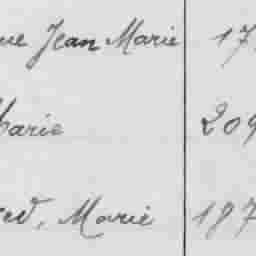 ue Jean Marie 17
Marie
red, Marie 187